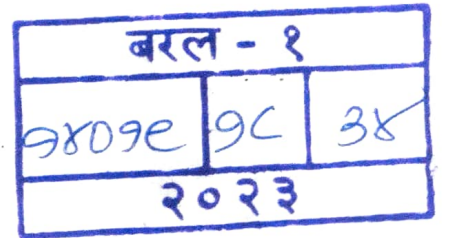 बरल - १
१४०१९ १८ ३४
२०२३